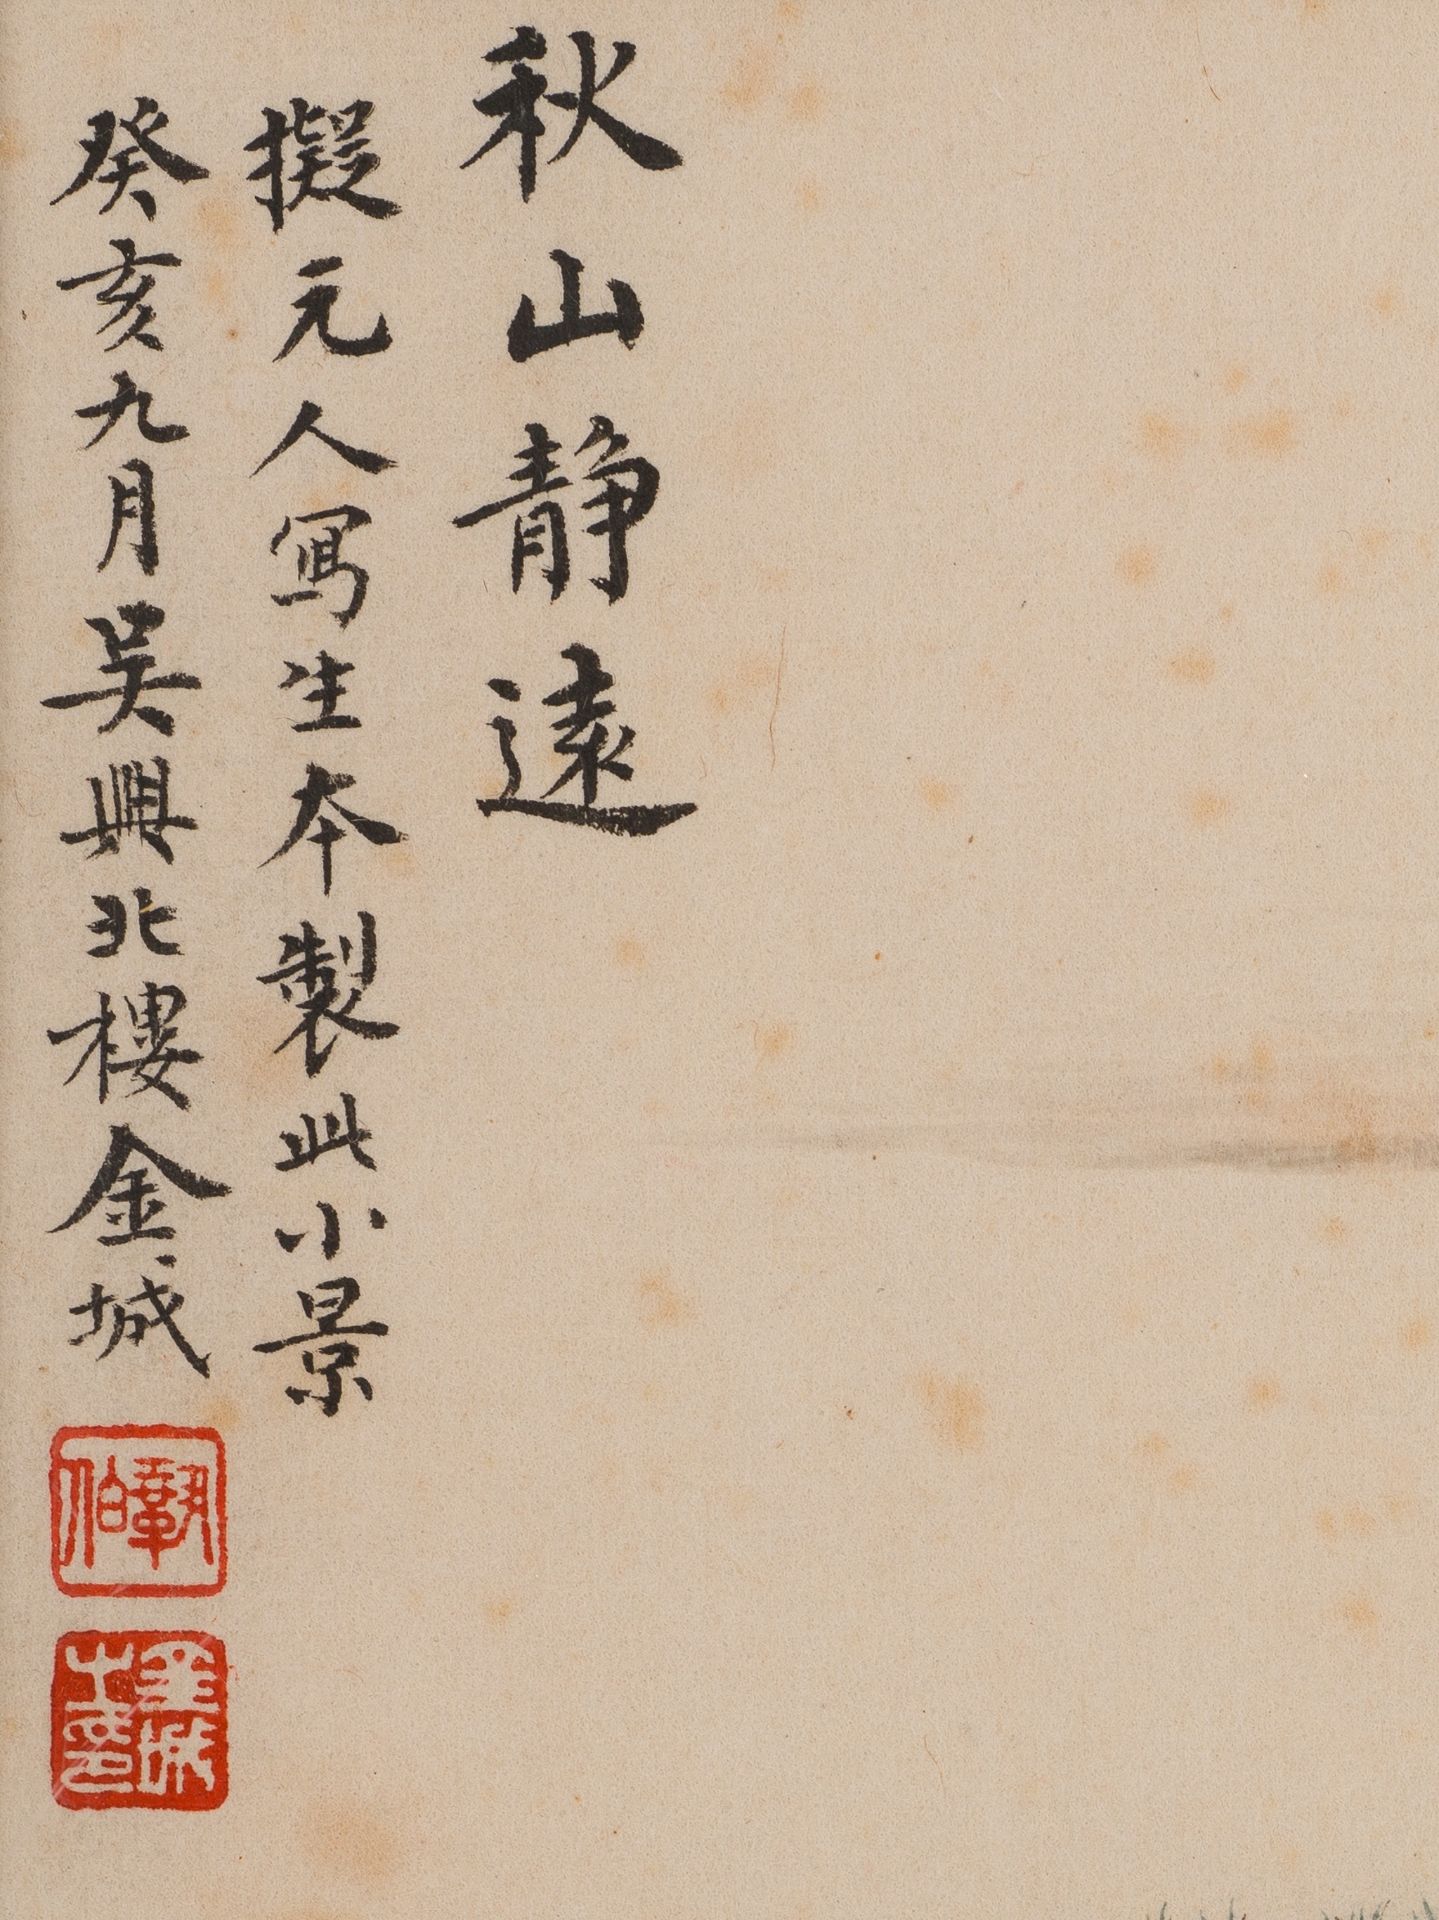 秋山靜遠
擬元人寫生本製此小景
癸亥九月吳興北樓金城
鞏伯
金城之鉨